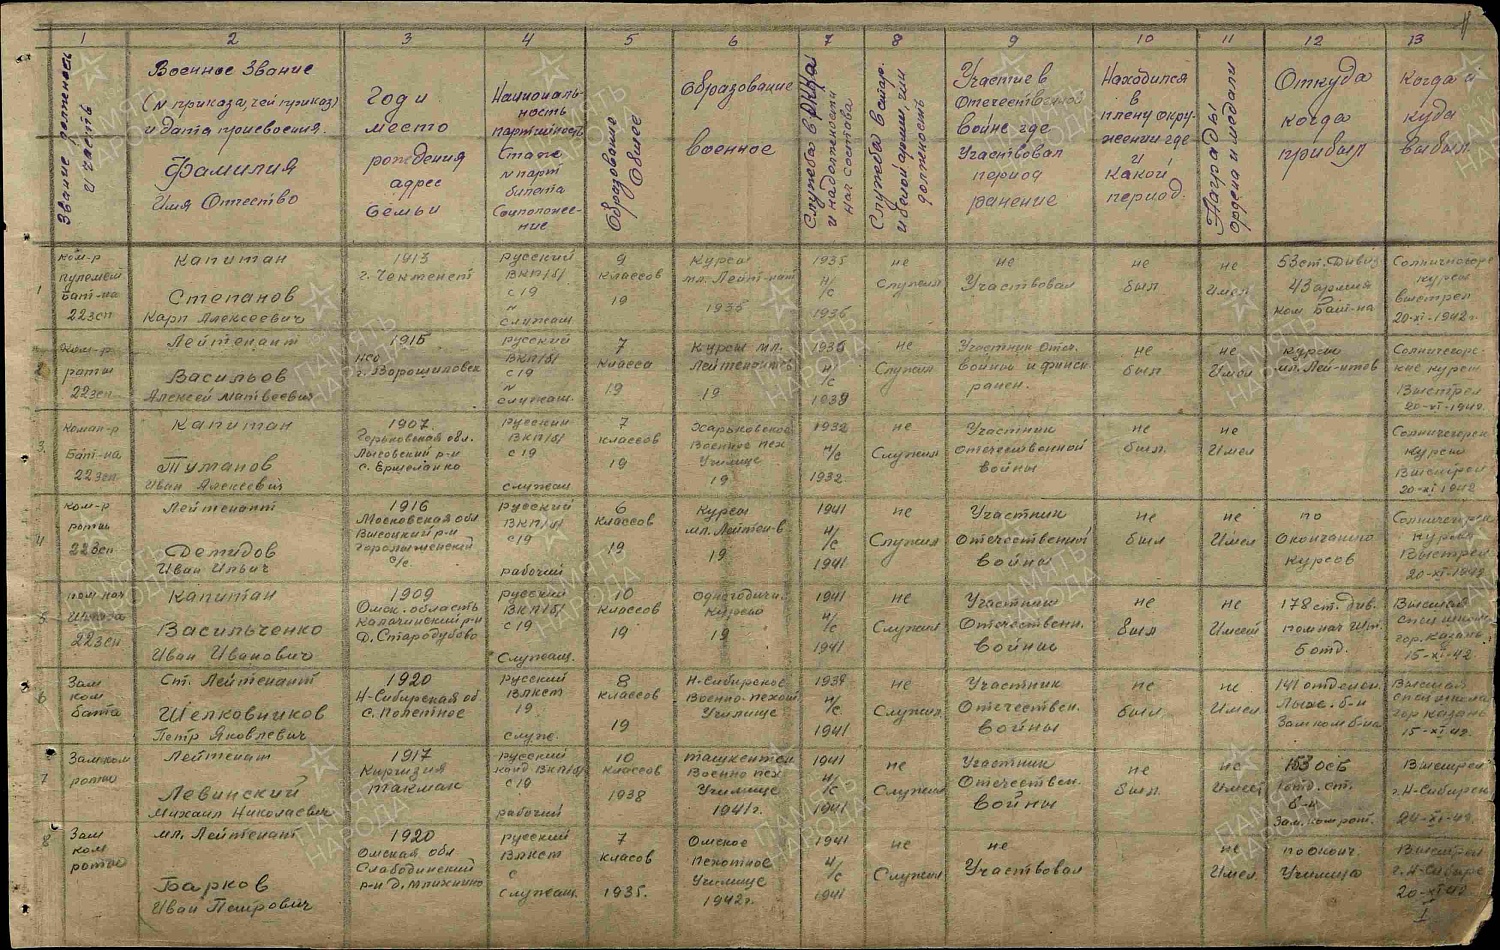 1 2 3 4 5 6 7 8 9 10 11 12 13
Звание должность и часть
Военное Звание
(N приказа, чей приказ)
и дата присвоения.
Фамилия
Имя Отчество
Год и
место
рождения
адрес
семьи
Националь-
ность
партийность
Стаж
N парт
билета
Соцположе-
ние
Образование Общее
Образование
военное
Служба в РККА и на должности нач состава
Служба в стар. и белой армии, чин должность
Участие в
Отечественной
Войне где
Участвовал
период
ранение
Находился
в
плену окру-
жении где
и
какой
период.
Награды ордена и медали
Откуда
когда
прибыл
Когда и
куда
выбыл
1
ком-р
пулемет
бат-на
22 зсп
Капитан
Степанов
Карп Алексеевич
1913
русский
ВКП/б/
с 19
N
служащ.
9
классов
19
Курсы
мл. Лейт-нат
1935
1935
н/с
1936
не
Служил
не
Участвовал
не
был
не
Имел
53 ст. Дивиз
43 армия
ком. Бат-на
Солничногорс
курсы
выстрел
20-XI-1942г.
2
ком-р
роты
22 зсп
Лейтенант
Васильов
Алексей Матвеевич
1915
г. Ворошиловск
русский
ВКП/б/
с 19
N
служащ.
7
класса
19
Курсы мл.
Лейтенантов
19
1936
н/с
1939
не
Служил
Участник Отеч.
войны и финск.
ранен.
не
был
не
Имел
курсы
мл. Лей-нтов
Солничегорс-
кие курсы
Выстрел
20-XI-1942
3
Коман-р
Бат-на
22 зсп
Капитан
Туманов
Иван Алексеевич
1907
Горьковская обл.
Лысовский р-н
русский
ВКП/б/
с 19
служащ
7
классов
19
Харьковское
Военное пех
Училище
19
1932
н/с
1932
не
Служил
Участник
Отечественной
войны
не
был.
не
Имел
Солничегорск
курсы
Выстрел
20-XI 1942
4
ком-р
роты
22 зсп
Лейтенант
Демидов
Иван Ильич
1916
Московская обл
Высоцкий р-н
с/с
русский
ВКП/б/
с 19
рабочий
6
классов
19
Курсы
мл. Лейтен-в
19
1941
н/с
1941
не
Служил
Участник
Отечественной
войны
не
был
не
Имел
по
Окончанию
курсов
Солничегорск
Курсы
Выстрел
20-XI-1942
5
пом. нач
Штаба
22 зсп
Капитан
Васильченко
Иван Иванович
1909
Омск. область
Калачинский р-н
Д. Стародубово
русский
ВКП/б/
с 19
Служащ.
10
классов
19
Одногодичн.
Курсы
19
1941
н/с
1941
не
Служил
Участник
Отечественн.
войны
не
был
не
Имеет
178 ст. див.
пом нач Шт.
6 отд.
Высшая
спец школа
гор. Казань
15-XI-42
6
Зам
ком
бата
Ст. Лейтенант
Шелковников
Петр Яковлевич
1920
Н-Сибирская об.
с. Полетное
русский
ВЛКСМ
19
служ.
8
классов
19
Н-Сибирское
Военно-пехот
Училище
1939
н/с
1941
не
Служил.
Участник
Отечествен.
войны
не
был
не
Имел
141 отделен.
Лыж. б-н
Зам ком б-на
Высшая
спец школа
гор Казань
15-XI-42.
7
Зам ком
роты
Лейтенат
Левинский
Михаил Николаевич
1917
Киргизия
Такмак
русский
канд ВКП/б/
с 19
рабочий
10
классов
1938
Ташкентск
Военно пех
Училище
1941г.
1941
н/с
1941
не
Служил
Участник
Отечествен.
войны
не
был.
не
Имеет
153 осб
1 отд. ст.
б-н
Зам. ком рот.
Выстрел
г. Н-Сибирск
24-XI-42.
8
Зам
ком
роты
мл. Лейтенант
Барков
Иван Петрович
1920
Омская обл
Слабодинский
русский
ВЛКСМ
с
Служащ.
7
класов
1935.
Омское
пехотное
Училище
1942г.
1941
н/с
1941
не
Служил
не
Участвовал
не
Имел
по оконч.
Училища
Выстрел
г. Н-Сибирс
20-XI-42
1
ПАМЯТЬ
НАРОДА